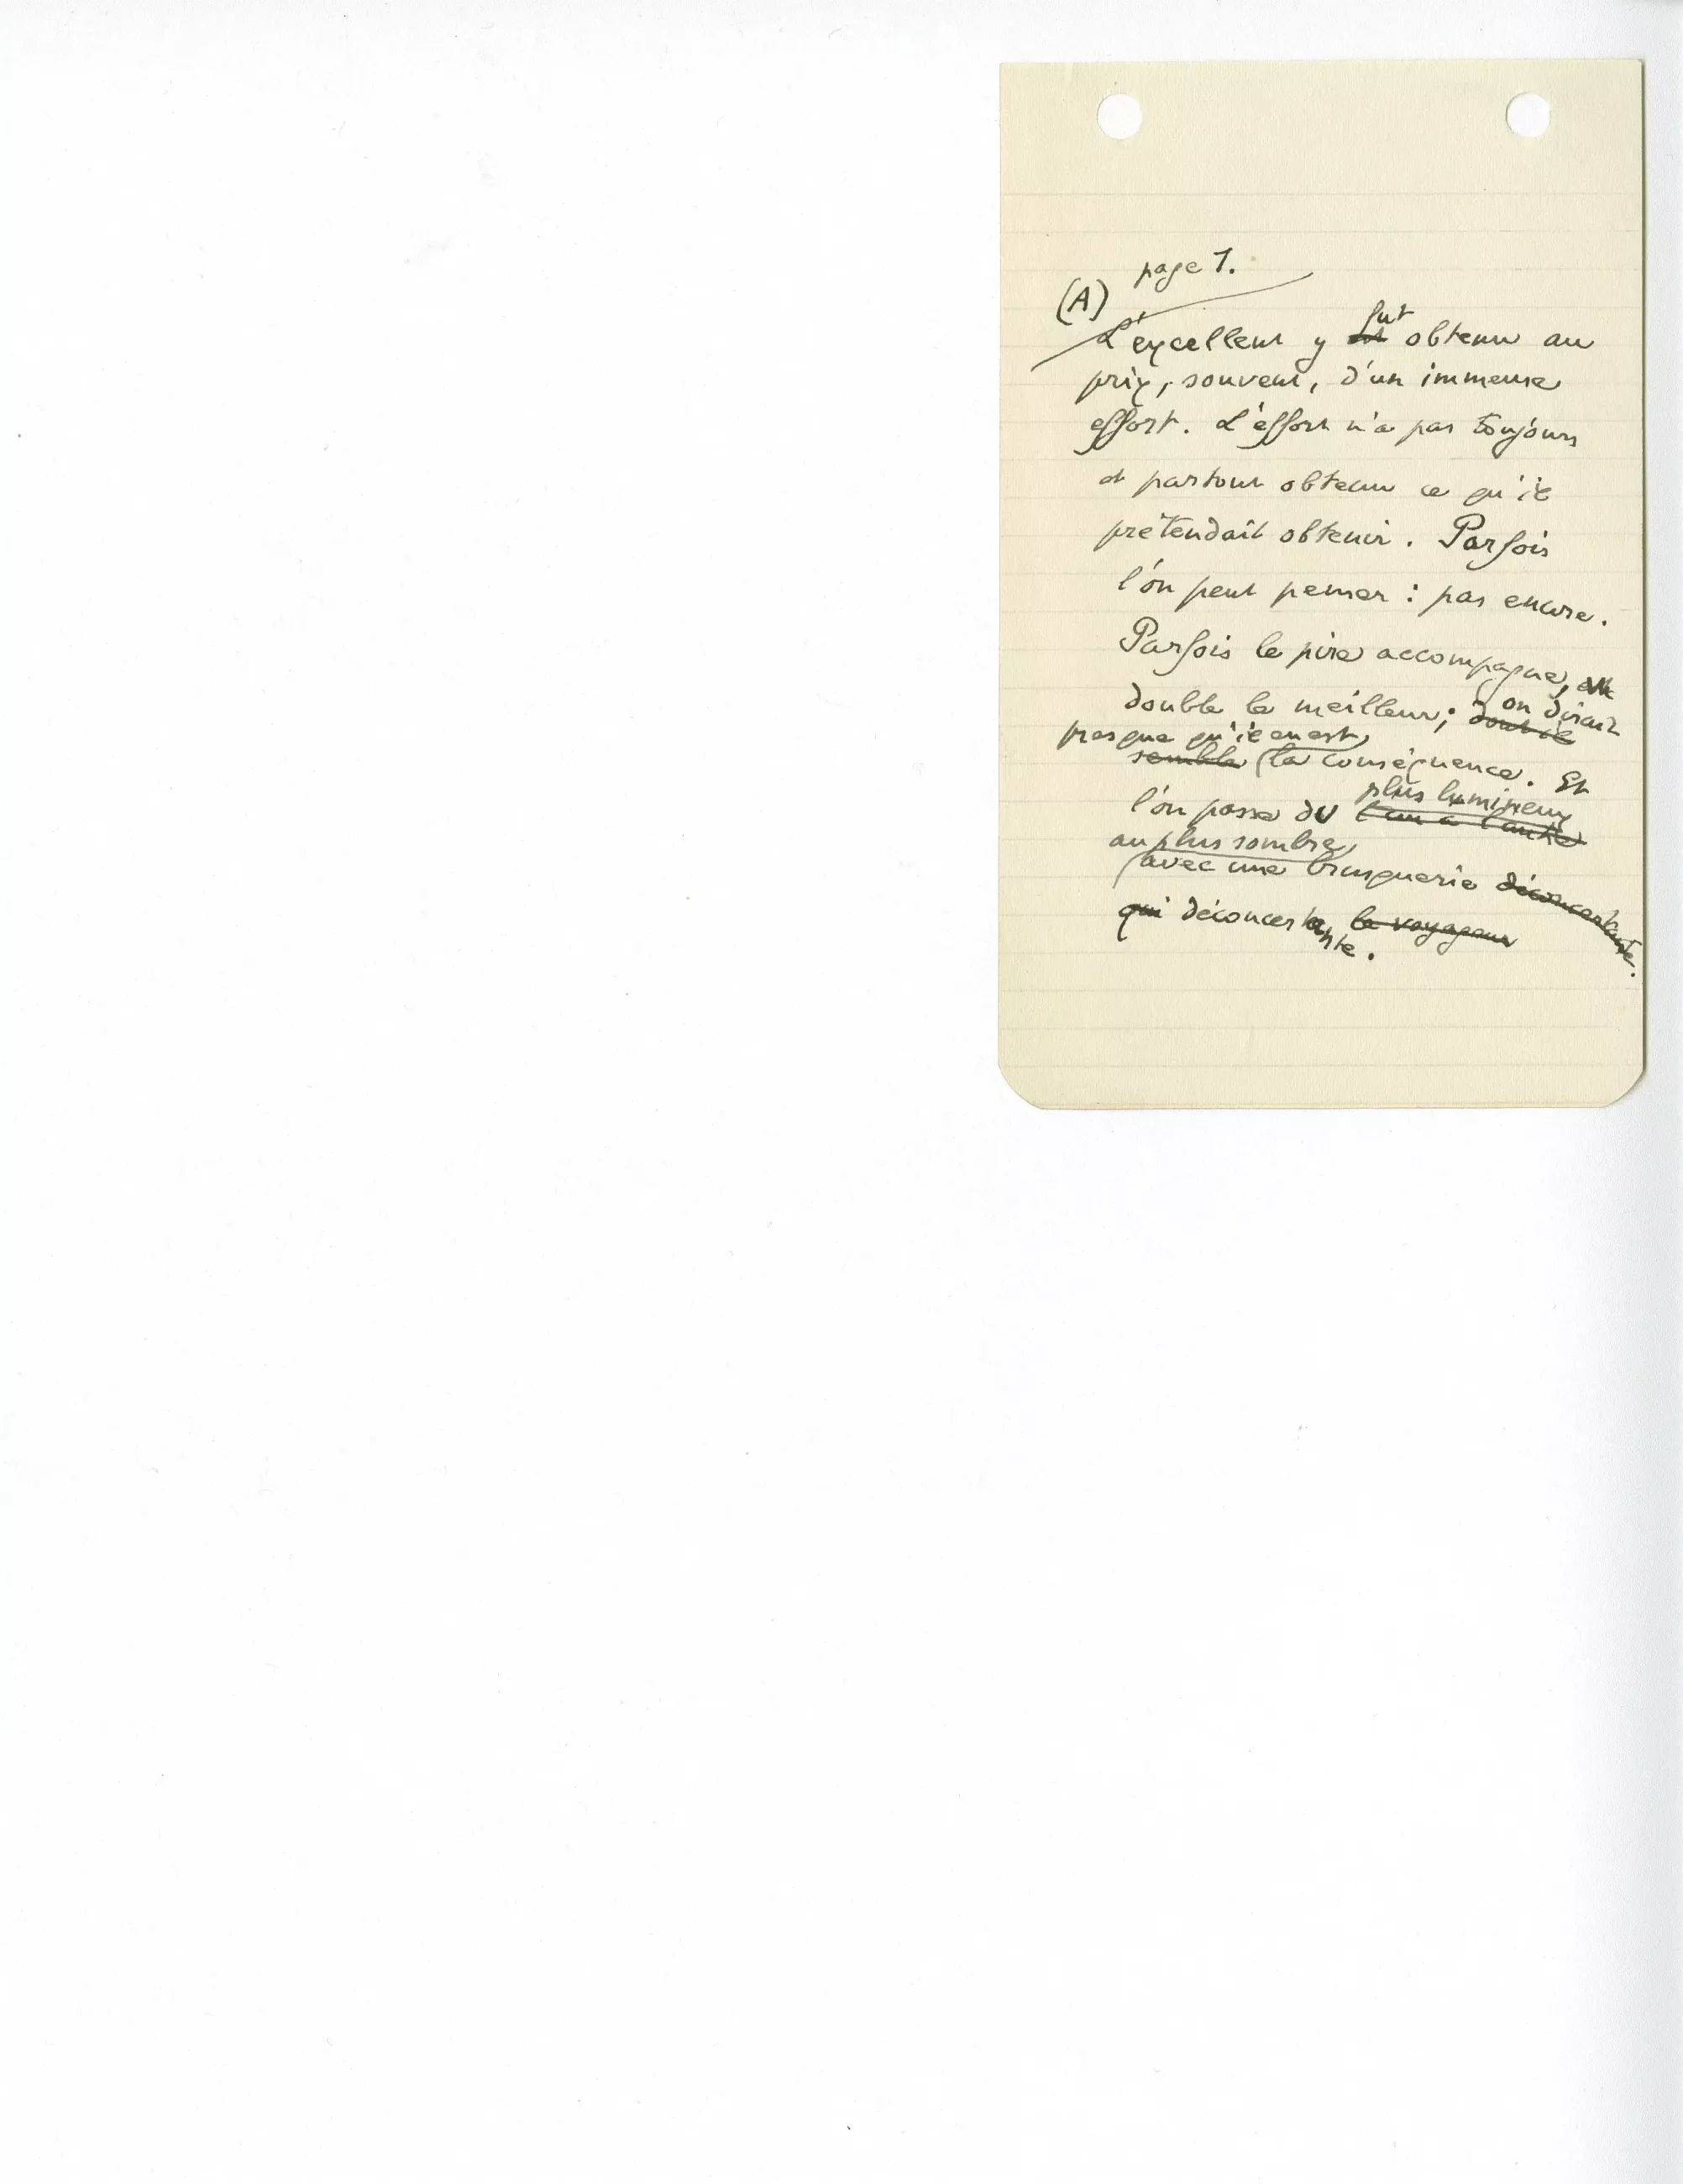 page 1.
(A)
fut
L'excellent y est obtenu au
prix, souvent, d'un immense
effort. L'effort n'a pas toujours
et partout obtenu ce qu'il
prétendait obtenir. Parfois
l'on peut penser : pas encore.
Parfois le pire accompagne,
double le meilleur; on dirait
dont il
presque qu'il en est
semble la conséquence. Et
plus lumineux
l'on passe du l'un à l'autre
au plus sombre,
avec une brusquerie déconcertante.
qui déconcertante. le voyageur